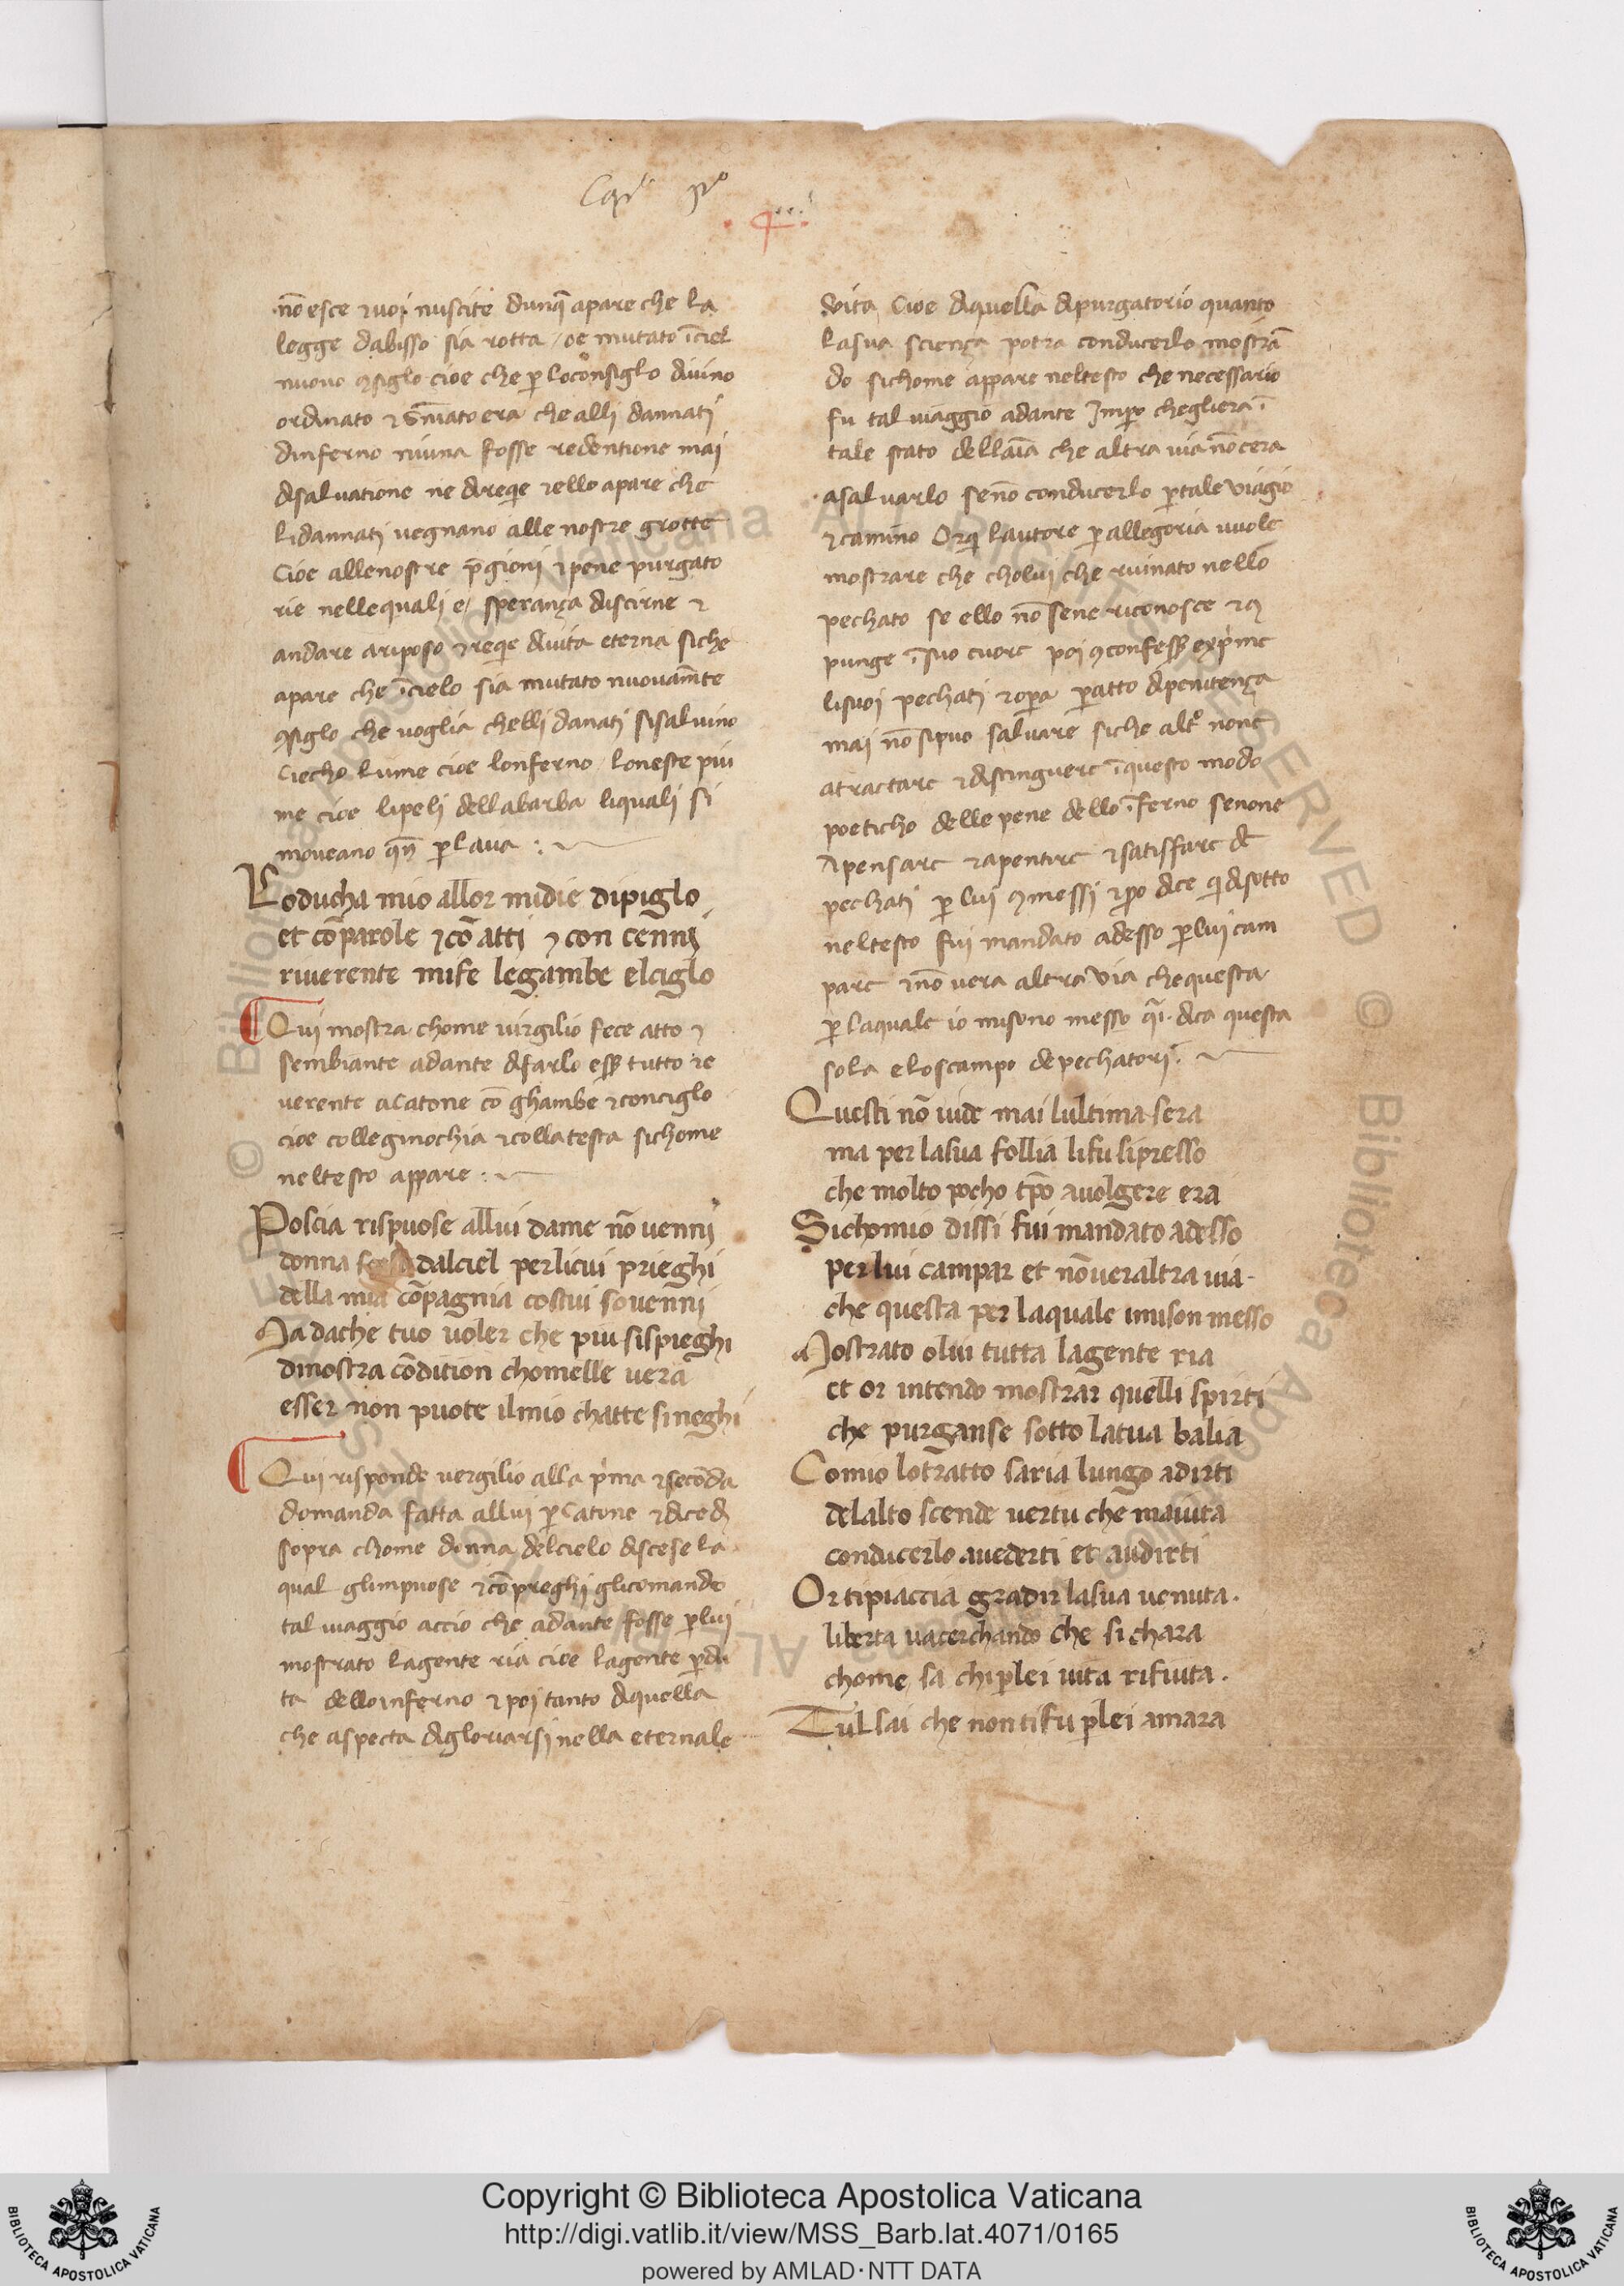 Capi pº
nō esce ⁊ uoi nuscite dunq̄ apare che la
legge dabisso sia rotta / oe mutato īciel
nuouo ꝯsiglo cioe che ꝑ loconsiglo diuino
ordinato ⁊ era che alli dannati
dinferno niuna fosse redentione mai
disaluatione ne direqie ⁊ ello apare che
lidannati uegnano alle nostre grotte
Cioe allenostre p̄gioni ⁊ pene purgato
rie nellequali e / sperança discirne ⁊
andare ariposo ⁊ reqie diuita eterna siche
apare che īcielo sia mutato nuouam̄te
ꝯsiglo che uoglia chelli danati sisaluino
Ciecho lume cioe lonferno loneste piu
me cioe lipeli dellabarba liquali si
moueano qn̄ ꝑlaua :
Loducha mio allor midie dipiglo
et cō parole ⁊ cō atti ⁊ con cenni
riuerente mife legambe elciglo
Qui mostra chome uirgilio fece atto ⁊
sembiante adante difarlo ess̄ tutto re
uerente aCatone cō ghambe ⁊ conciglo
cioe colleginochia ⁊ colla testa sichome
neltesto appare :
Poscia rispuose allui dame nō uenni
donna scesa dalciel perlicui prieghi
della mia cōpagnia costui souenni
Ma dache tuo uoler che piu sispieghi
dinostra cōdition chomelle uera
esser non puote ilmio chatte sineghi
Qui risponde uergilio alla pͥma ⁊ secōda
domanda fatta allui ꝑ Catone ⁊ dice di
sopra chome donna delcielo discese la
qual glimpuose ⁊ cō preghi glicomando
tal uiaggio accio che adante fosse ꝑ lui
mostrato lagente ria cioe lagente ꝑdu
ta delloinferno ⁊ poi tanto diquella
che aspecta digloriarsi nella eternale
uita Cioe diquella dipurgatorio quanto
lasua sciença potra conducerlo mostrā
do sichome appare neltesto che necessario
fu tal uiaggio adante Impo chegliera ī
tale stato dellaīa che altra uia nō cera
asaluarlo senō conducerlo ꝑ tale uiagio
⁊ camino Orqi lautore ꝑ allegoria uuole
mostrare che cholui che ruinato nello
pechato se ello nō sene riconosce ⁊ ꝯ
punge ī suo cuore poi ꝯfess̄ expͥme
lisuoi pechati ⁊ oꝑa ꝑ atto dipenitença
mai nō sipuo saluare siche altº none
atractare ⁊ distinguere ī questo modo
poeticho delle pene dello īferno senone
Apensare ⁊ apentire ⁊ satisfare de
pechati ꝑ lui ꝯmessi ⁊ ꝑo dice qi disotto
neltesto fui mandato adesso ꝑ lui cam
pare ⁊ nō uera altra uia chequesta
ꝑ laquale io misono messo qͣi dica questa
sola eloscampo depechatori.
Questi nō uide mai lultima sera
ma per lasua follia lifu sipresso
che molto pocho tp̄o auolgere era
Sichomio dissi fui mandato adesso
per lui campar et nōueraltra uia
che questa per laquale imison messo
Mostrato olui tutta lagente ria
et or intendo mostrar quelli spirti
che purganse sotto latua balia
Comio lotratto saria lungo adirti
delalto scende uertu che maiuta
conducerlo auederti et audirti
Or tipiaccia gradir lasua uenuta.
liberta uacerchando che si chara
chome sa chi ꝑlei uita rifiuta.
Tulsai che non tifu ꝑlei amara
Copyright © Biblioteca Apostolica Vaticana
http://digi.vatlib.it/view/MSS_Barb.lat.4071/0165
powered by AMLAD·NTT DATA